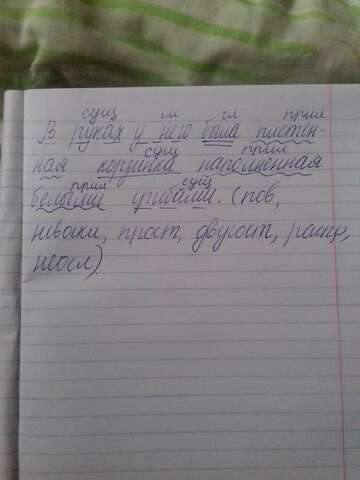 сущ м гл прил
В руках у него была плетен-
сущ прил
ная корзинка наполненная
прил сущ
белыми грибами. (пов,
невоскл, прост, двусост, распр,
неосл)